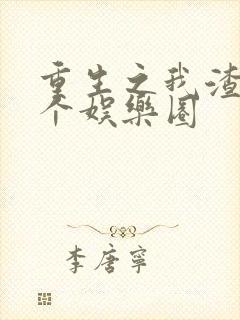 重生之我渣
个娱樂圈
李唐寧